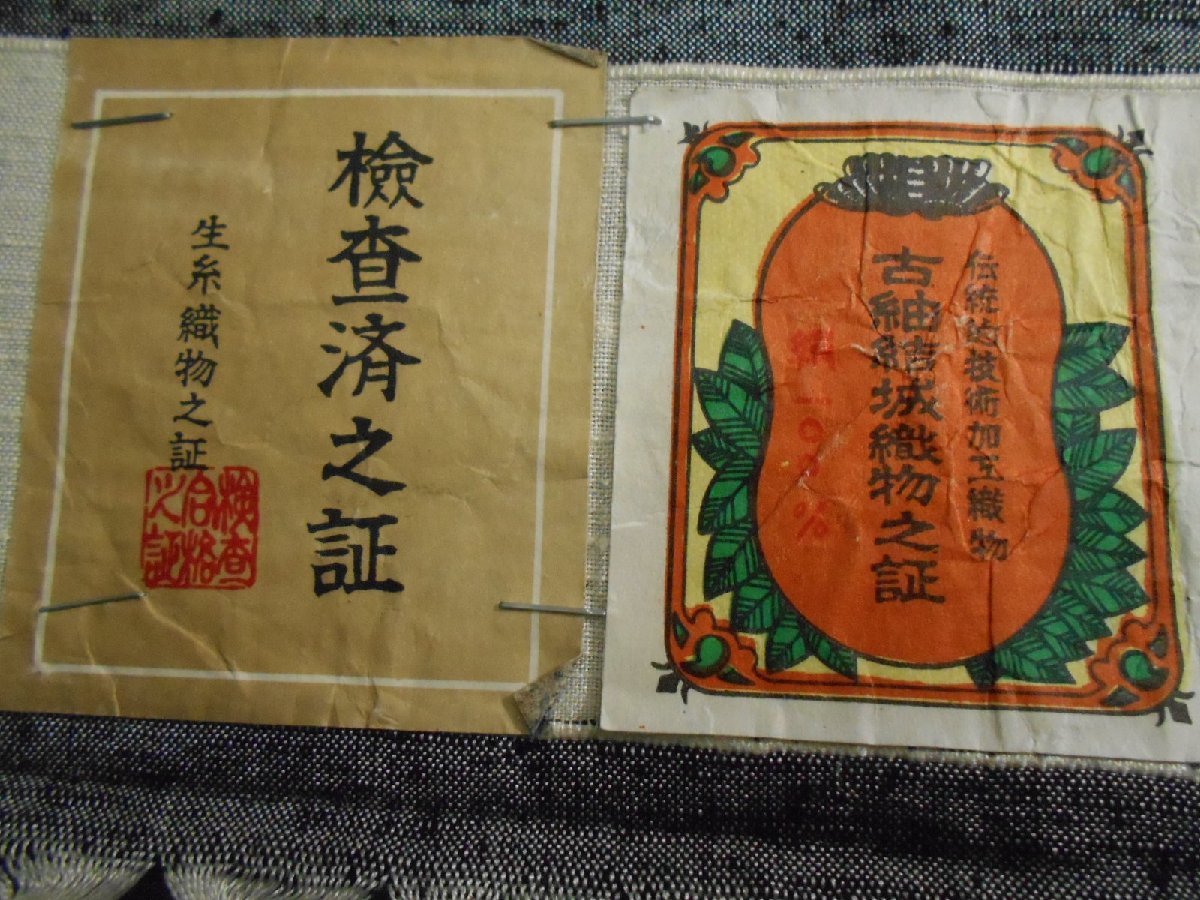 檢査済之証
生糸織物之証
検査
合格
之証
伝統的技術加工織物
古紬結城織物之証
絹一〇〇%